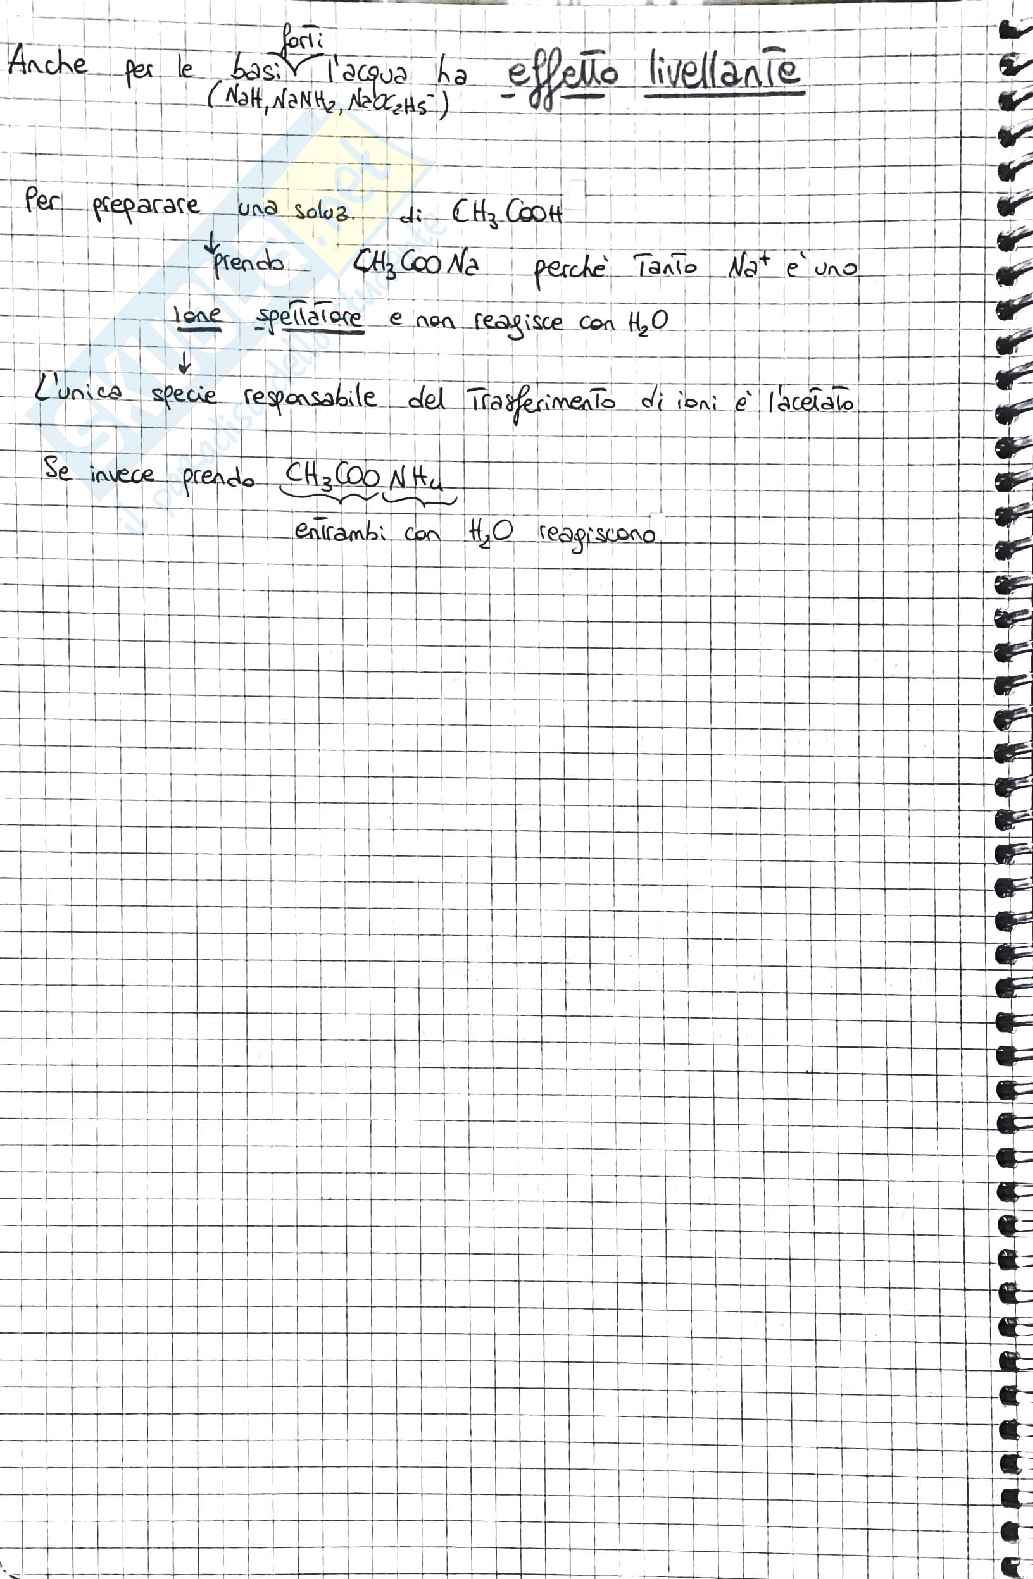 Anche per le basi forti l'acqua ha effetto livellante
(NaH, NaNH2, NaOC2H5-)
Per preparare una soluz. di CH3COOH
↓ prendo CH3COONa perchè tanto Na+ è uno
ione spettatore e non reagisce con H2O
↓
L'unica specie responsabile del trasferimento di ioni è l'acetato
Se invece prendo CH3COO NH4
entrambi con H2O reagiscono